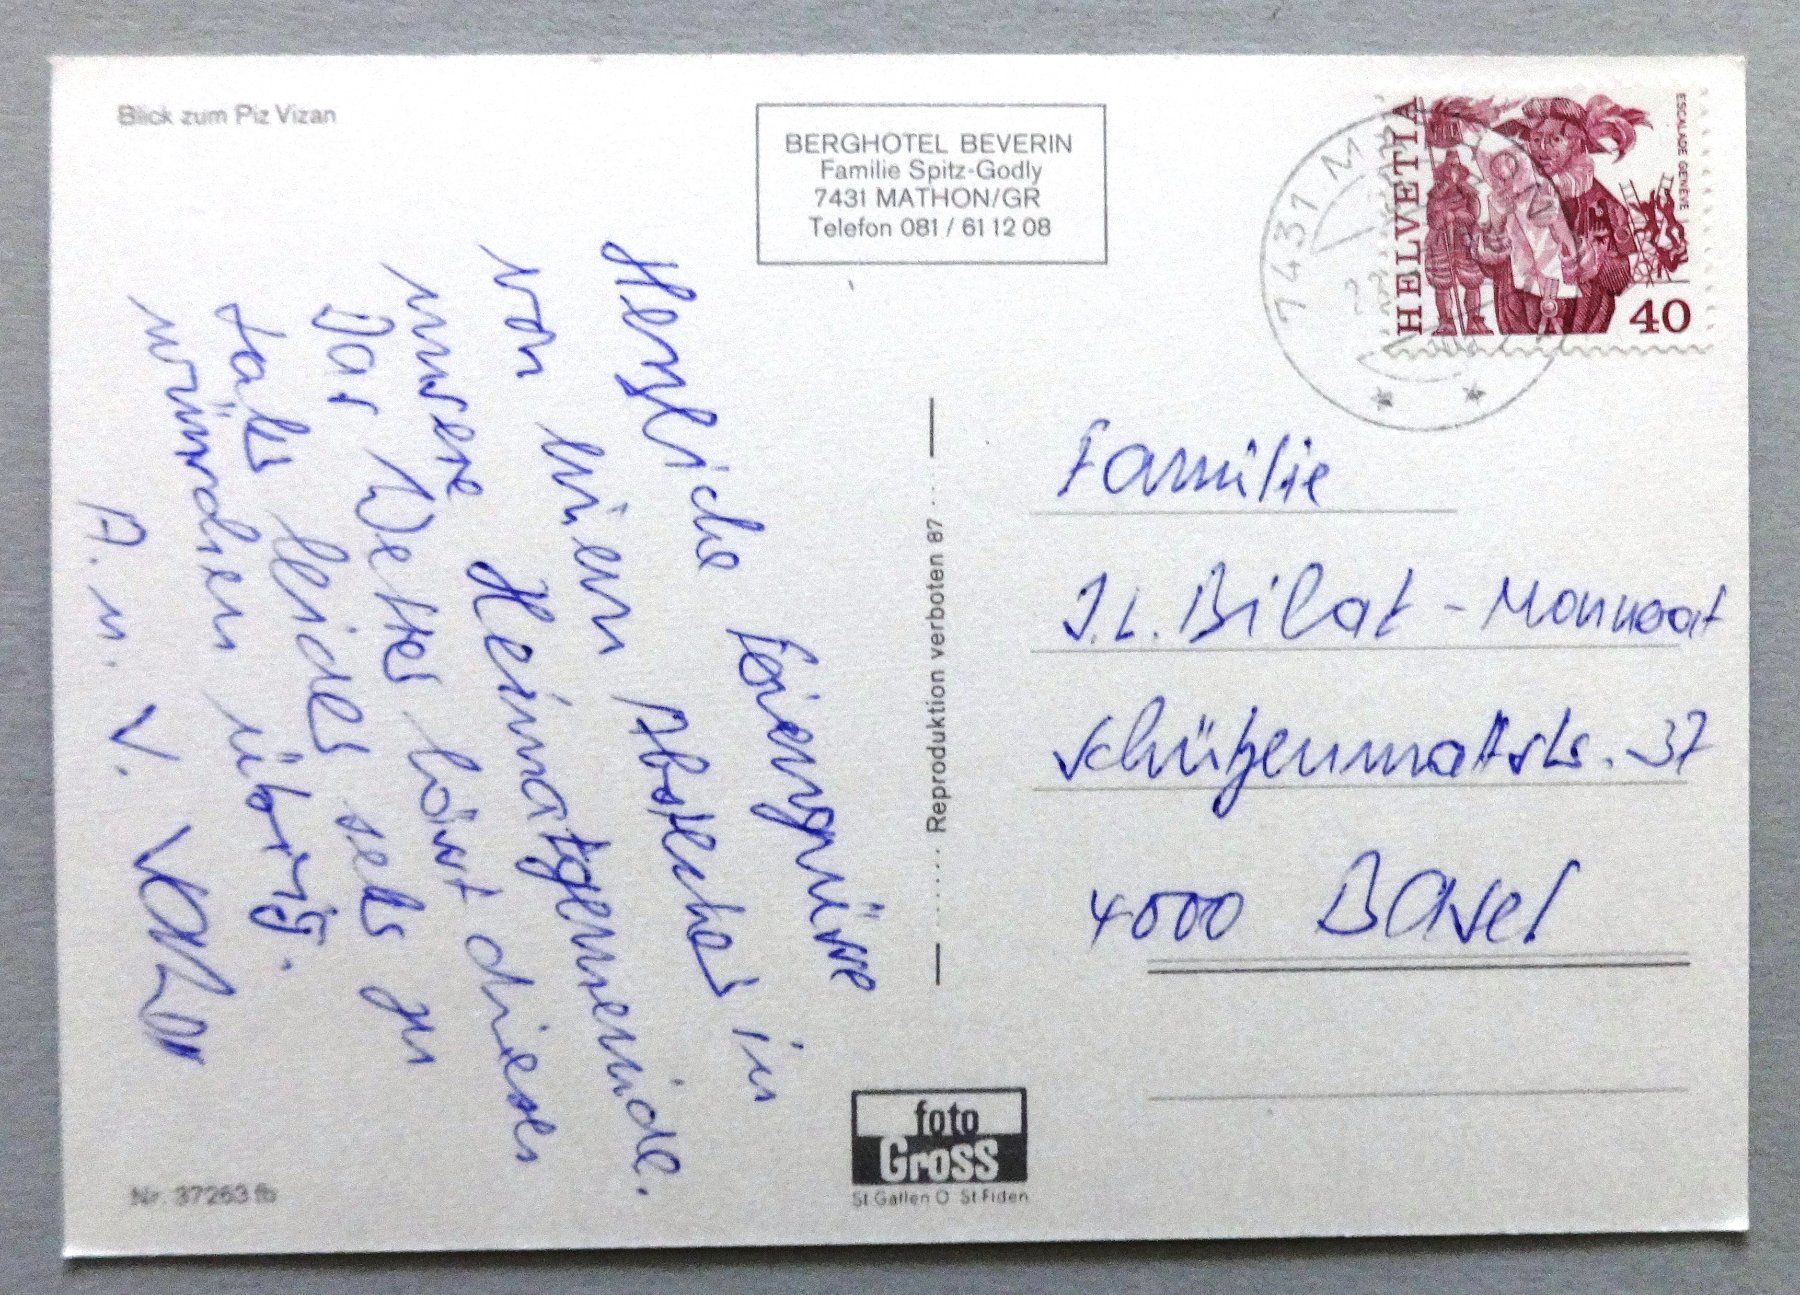 Blick zum Piz Vizan
BERGHOTEL BEVERIN
Familie Spitz-Godly
7431 MATHON/GR
Telefon 081 / 61 12 08
HELVETIA
ESCALADE GENÈVE
40
7431 MATHON
Herzliche Feriengrüsse
von einem Abstecher in
unsere Heimatgemeinde.
Das Wetter lässt dieses
Jahr leider sehr zu
wünschen übrig.
A. u. V.
Familie
J.L. Bilat-Monnerat
Schützenmattstr. 37
4000 Basel
Reproduktion verboten 87
foto
Gross
St Gallen O St Fiden
Nr. 37263 fb